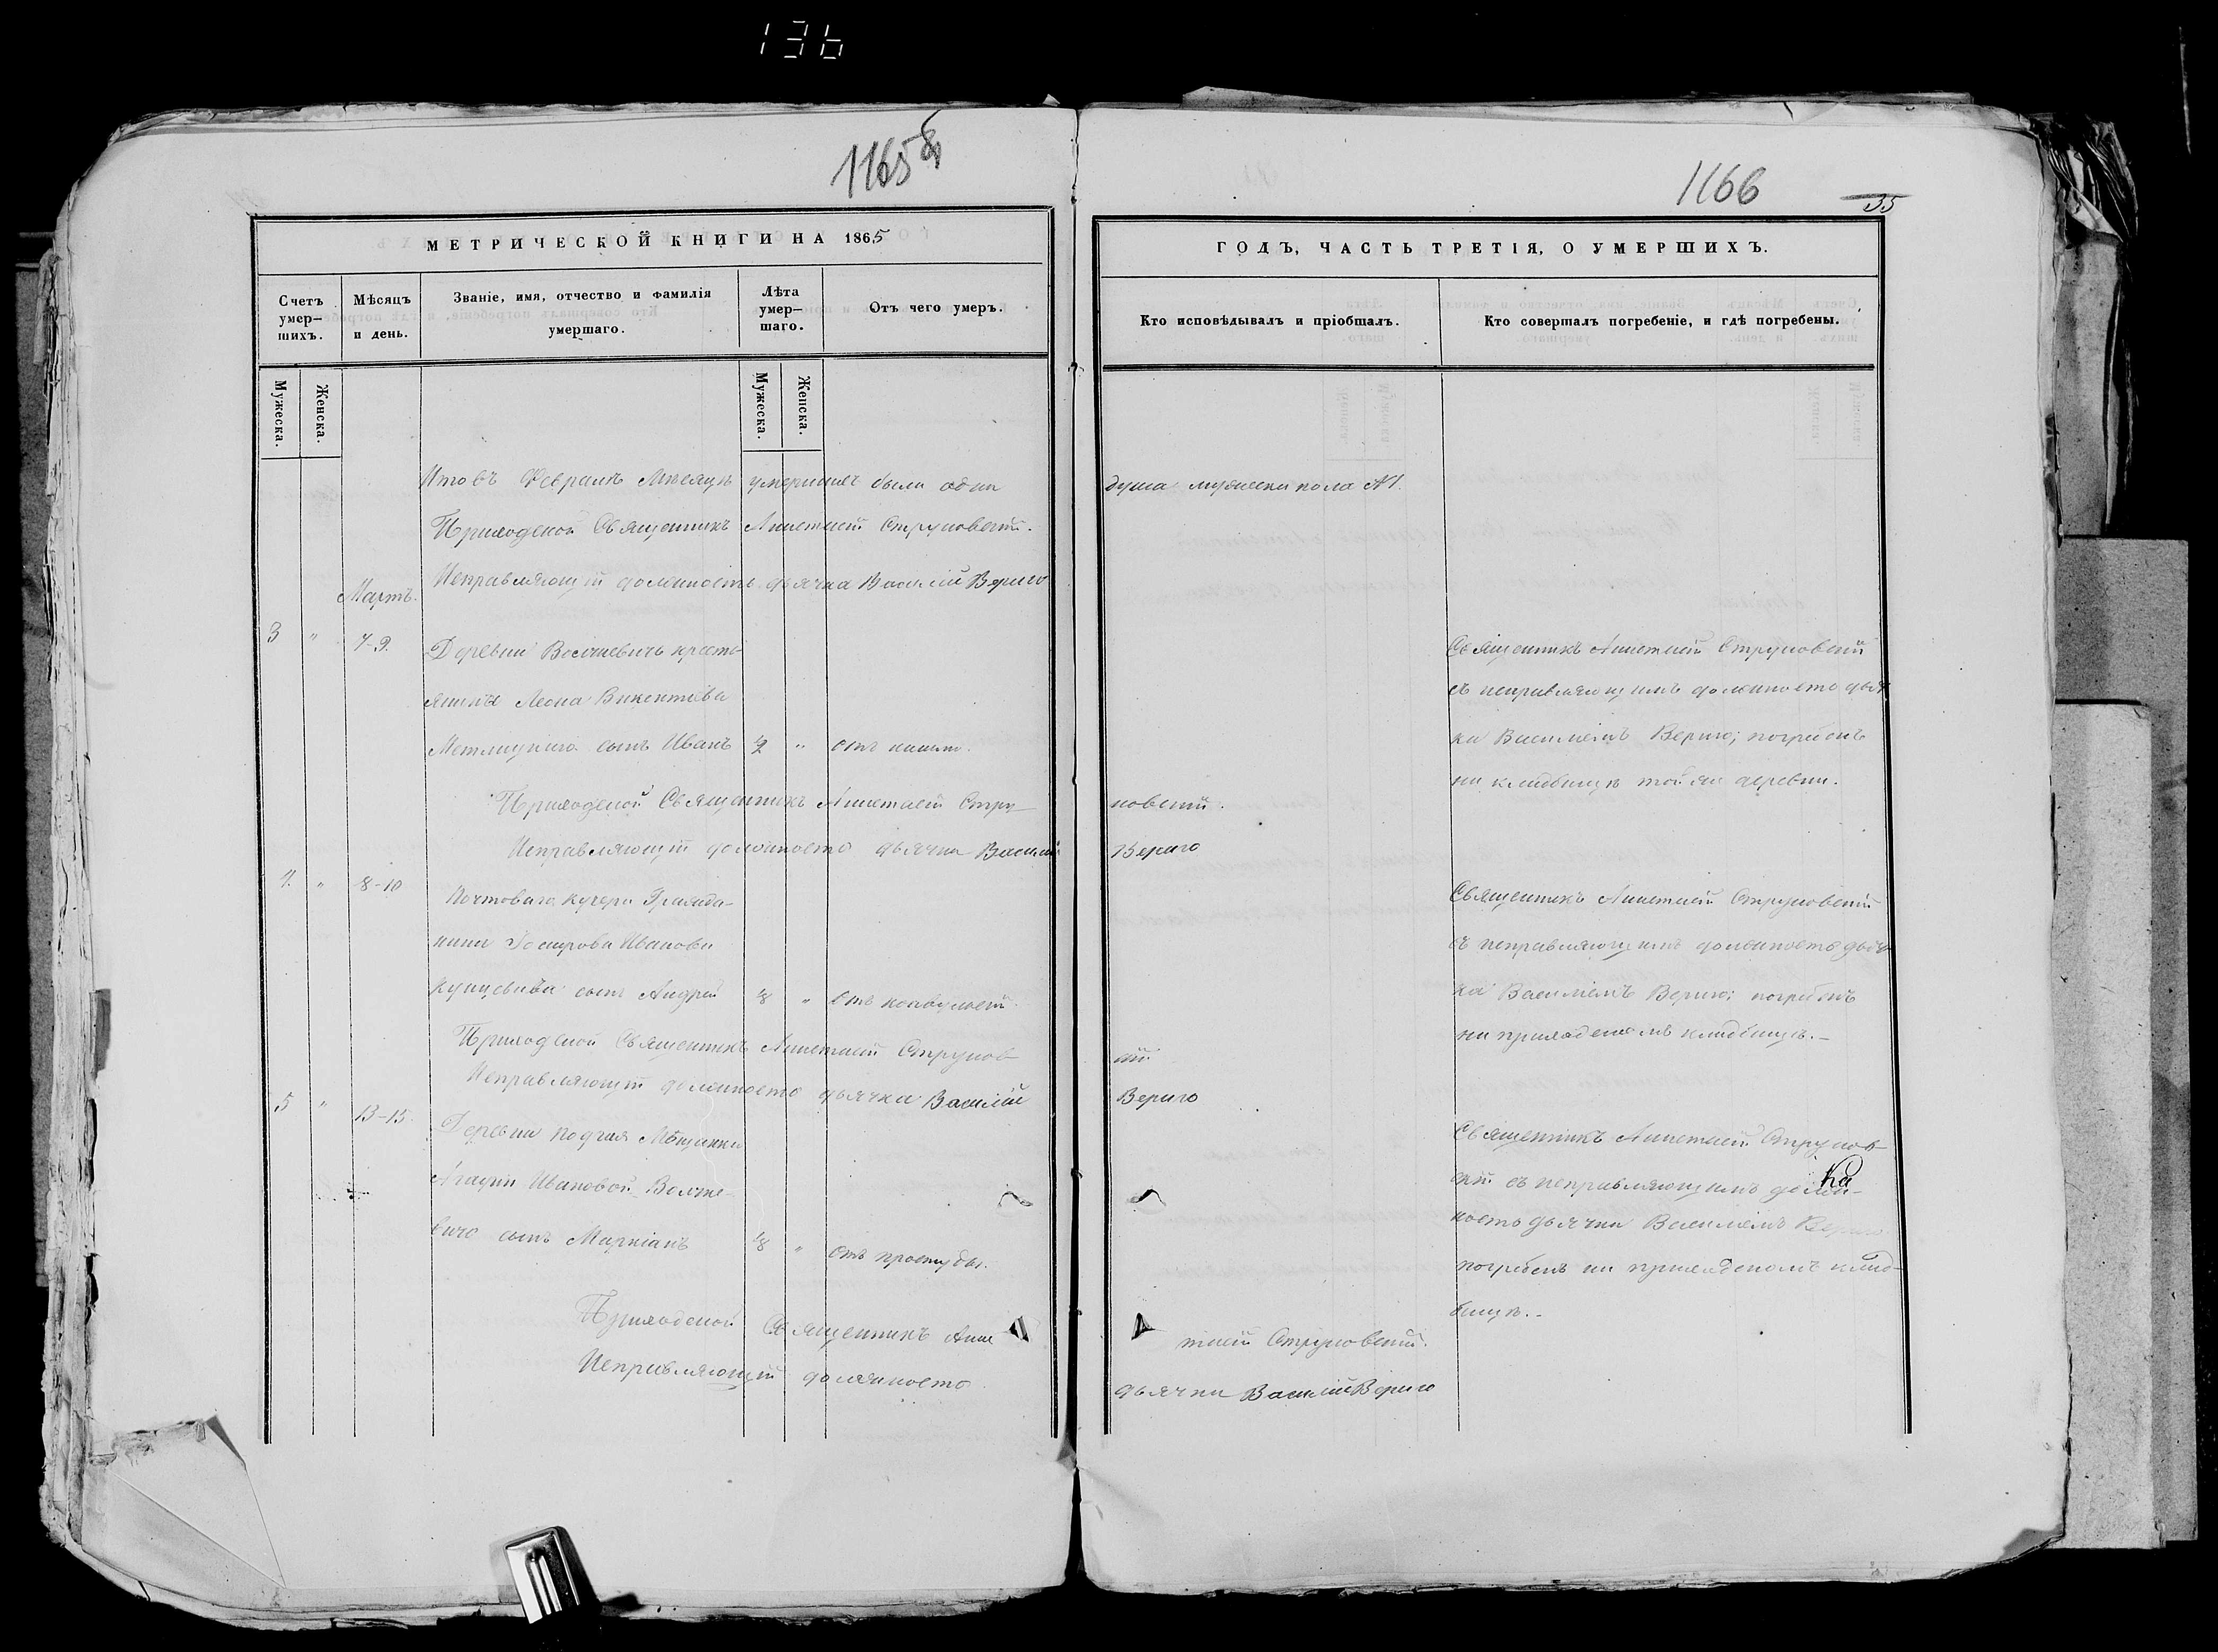 136
1165
1166
35
МЕТРИЧЕСКОЙ КНИГИ НА 1865
ГОДЪ, ЧАСТЬ ТРЕТІЯ, О УМЕРШИХЪ.
Счетъ умер-шихъ.
Мѣсяцъ и день.
Званіе, имя, отчество и фамилія умершаго.
Лѣта умер-шаго.
Отъ чего умеръ.
Кто исповѣдывалъ и пріобщалъ.
Кто совершалъ погребеніе, и гдѣ погребены.
Мужеска.
Женска.
Мужеска.
Женска.
Февралѣ Мѣсяцѣ умершихъ были один душа мужеска пола №1.
Приходской Священникъ Струковскій.
Исправляющій должность дьячка Василій Вериго
Мартъ.
3 " 7-9. Деревни кресть-
янина Леона Викентіева
сынъ Иванъ 1/2 " отъ
Священникъ Струковскій
съ исправляющимъ должность дьяч
ка Василіемъ Вериго; погребенъ
на кладбищѣ той же деревни.
Приходской Священникъ Стру ковскій.
Исправляющій должность дьячка Василій Вериго
4. " 8-10 Почтоваго кучера Гражда-
нина Иванова
сынъ Андрей 1/8 " отъ
Священникъ Струковскій
съ исправляющимъ должность дьяч
ка Василіемъ Вериго; погребенъ
на приходскомъ кладбищѣ.-
Приходской Священникъ Струков скій
Исправляющій должность дьячка Василій Вериго
5 " 13-15. Деревни Мѣщанки
Агафіи Ивановой
вичъ сынъ Маркіанъ 1/8 " отъ простуды.
Священникъ Струков
скій съ исправляющимъ долж-
ность дьячка Василіемъ Вериго
погребенъ на приходскомъ клад-
бищѣ.-
Приходской Священникъ Струковскій.
Исправляющій должность дьячка Василій Вериго